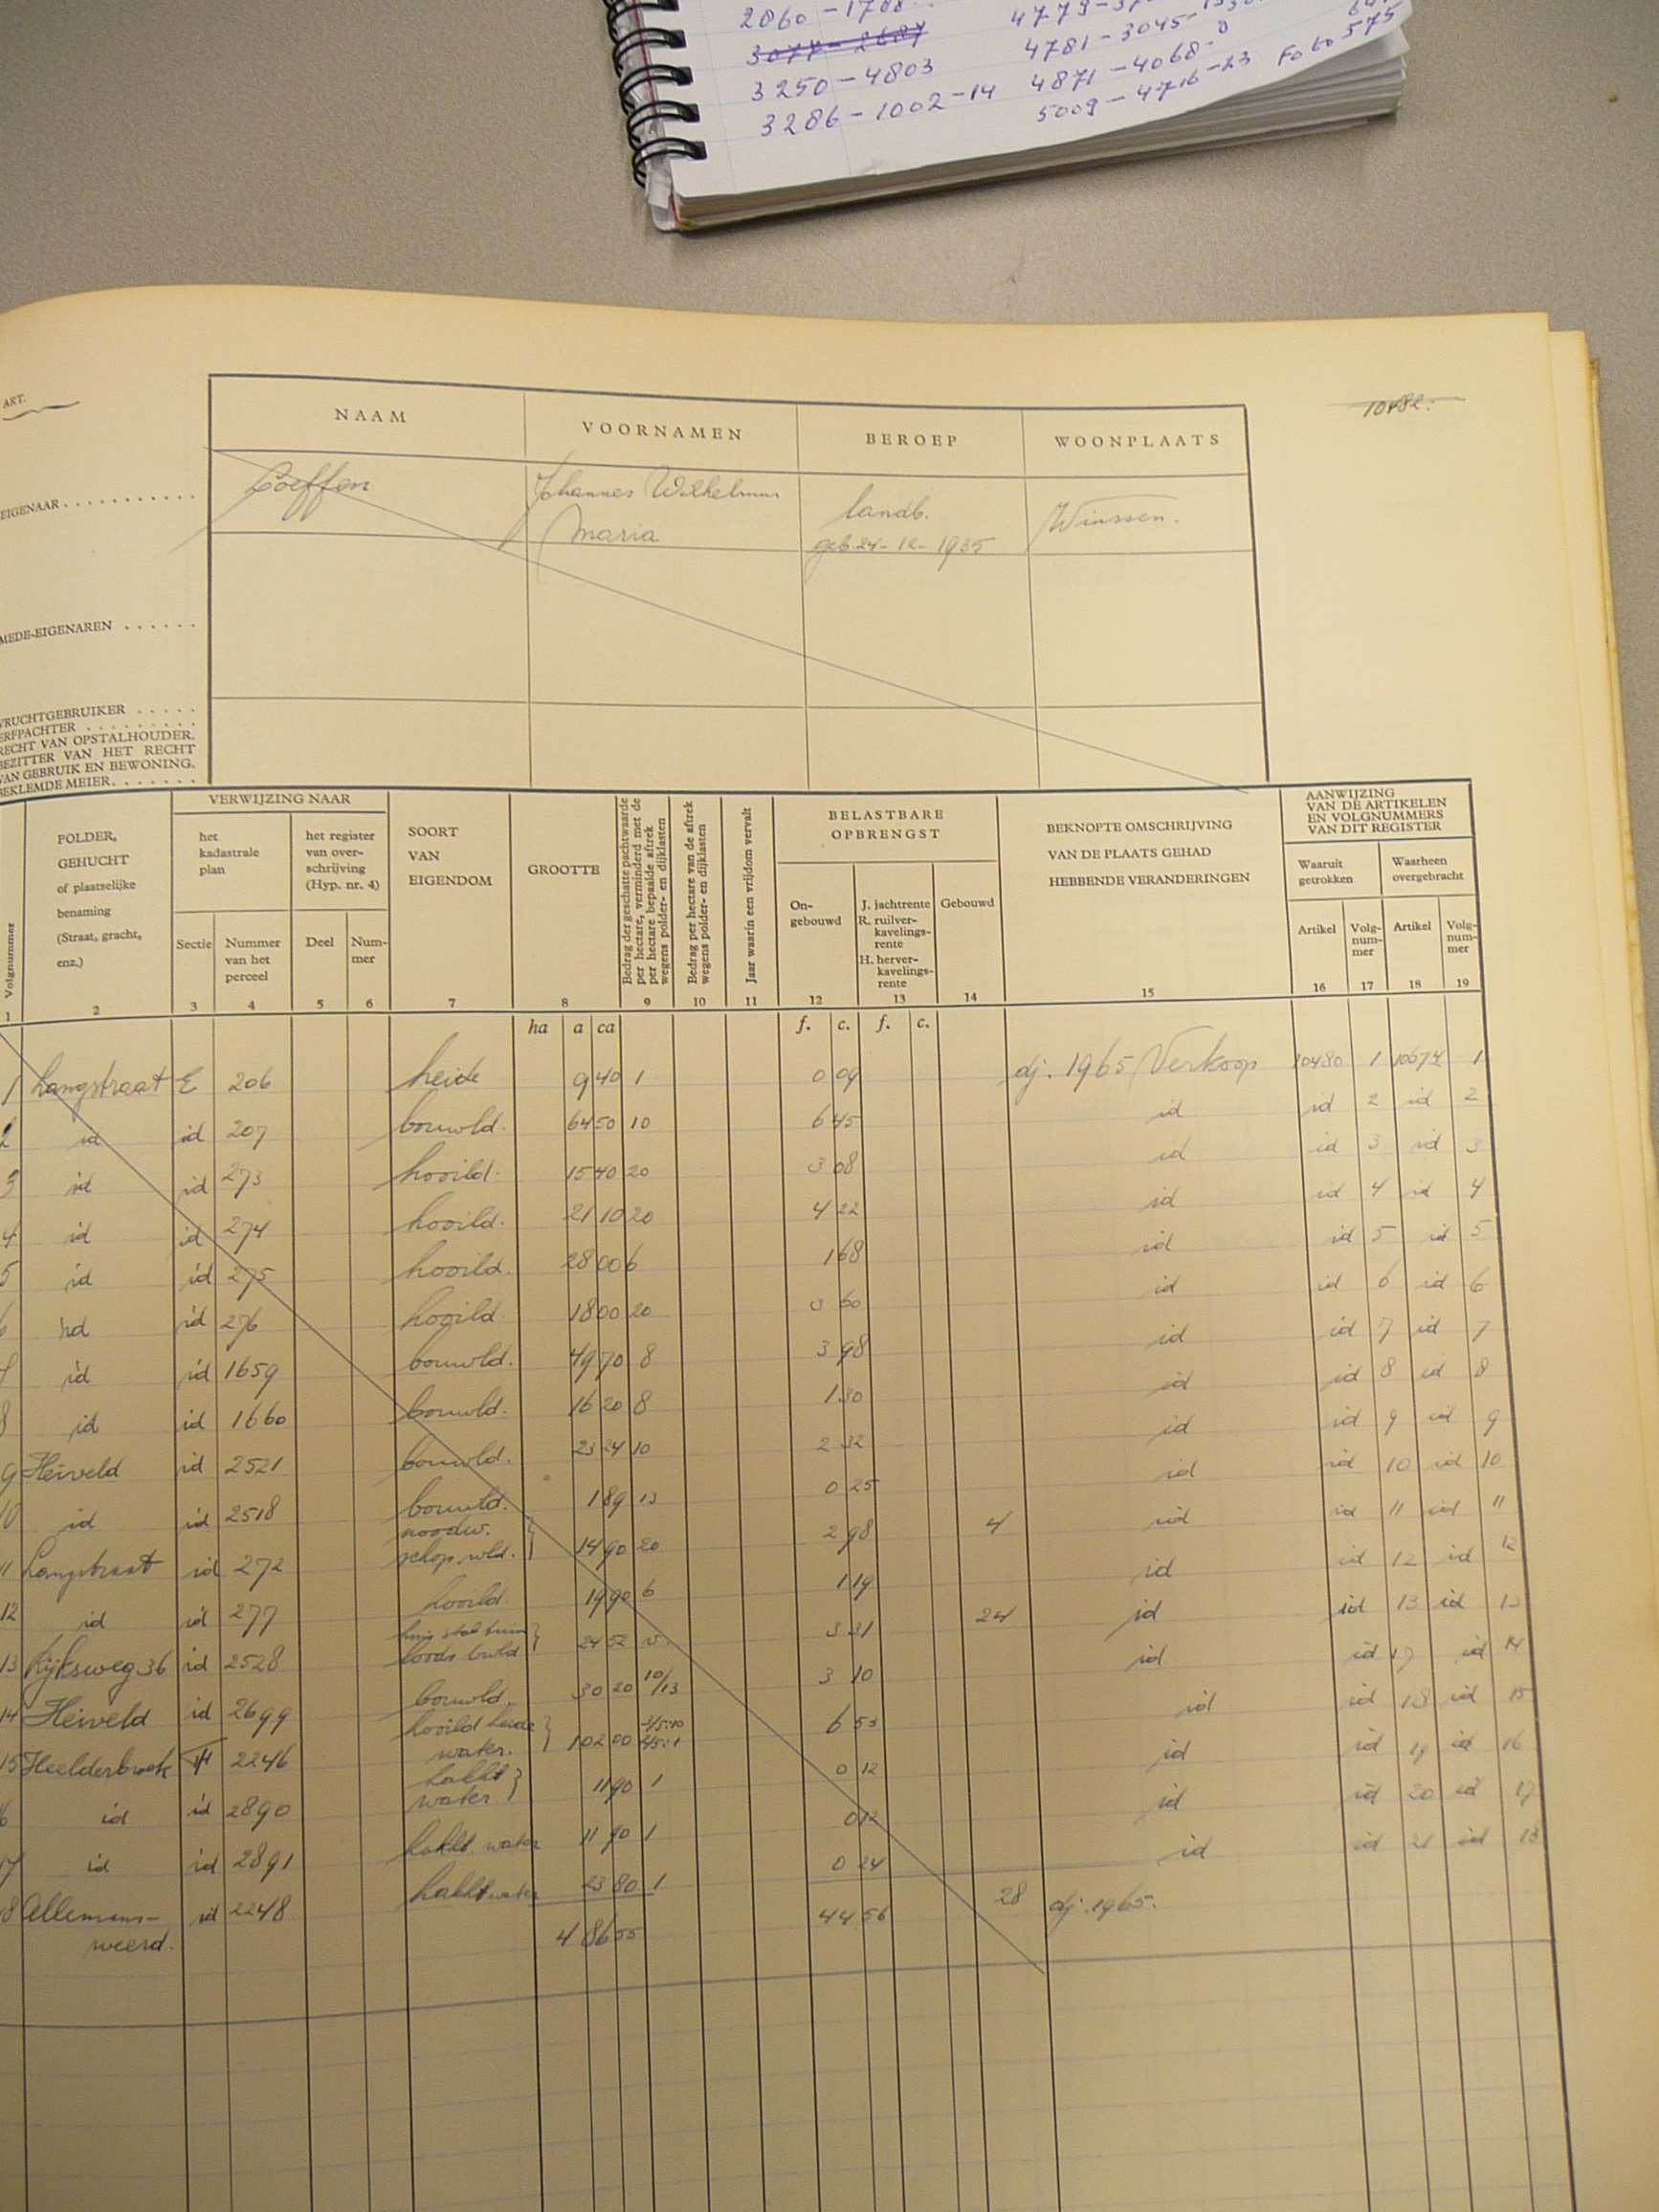 2060-1708
3077-2687
3250-4803
3286-1002-14
4781-3045-
4871-4068-8
5009-4716-23 Foto 575
ART.
10482.
NAAM VOORNAMEN BEROEP WOONPLAATS
EIGENAAR
Loeffen Johannes Wilhelmus landb. Winssen.
Maria geb. 24-12-1935
MEDE-EIGENAREN
VRUCHTGEBRUIKER
ERFPACHTER
RECHT VAN OPSTALHOUDER.
BEZITTER VAN HET RECHT
VAN GEBRUIK EN BEWONING.
BEKLEMDE MEIER.
Volgnummer
POLDER,
GEHUCHT
of plaatselijke
benaming
(Straat, gracht,
enz.)
VERWIJZING NAAR
het
kadastrale
plan
het register
van over-
schrijving
(Hyp. nr. 4)
Sectie
Nummer
van het
perceel
Deel
Num-
mer
SOORT
VAN
EIGENDOM
GROOTTE
Bedrag der geschatte pachtwaarde
per hectare, verminderd met de
per hectare bepaalde aftrek
wegens polder- en dijklasten
Bedrag per hectare van de aftrek
wegens polder- en dijklasten
Jaar waarin een vrijdom vervalt
BELASTBARE
OPBRENGST
On-
gebouwd
J. jachtrente
R. ruilver-
kavelings-
rente
H. herver-
kavelings-
rente
Gebouwd
BEKNOPTE OMSCHRIJVING
VAN DE PLAATS GEHAD
HEBBENDE VERANDERINGEN
AANWIJZING
VAN DE ARTIKELEN
EN VOLGNUMMERS
VAN DIT REGISTER
Waaruit
getrokken
Waarheen
overgebracht
Artikel
Volg-
num-
mer
Artikel
Volg-
num-
mer
1 2 3 4 5 6 7 8 9 10 11 12 13 14 15 16 17 18 19
ha a ca f. c. f. c.
1 Langstraat E 206 heide 9 40 1 0 09 dj. 1965 Verkoop 10480 1 10674 1
2 id id 207 bouwld. 64 50 10 6 45 id id 2 id 2
3 id id 273 hooild. 15 40 20 3 08 id id 3 id 3
4 id id 274 hooild. 21 10 20 4 22 id id 4 id 4
5 id id 275 hooild. 28 00 6 1 68 id id 5 id 5
6 id id 276 hooild. 18 00 20 3 60 id id 6 id 6
7 id id 1659 bouwld. 49 70 8 3 98 id id 7 id 7
8 id id 1660 bouwld. 16 20 8 1 30 id id 8 id 8
9 Heiveld id 2521 bouwld. 23 24 10 2 32 id id 9 id 9
10 id id 2518 bouwld. 1 89 13 0 25 id id 10 id 10
11 Langstraat id 272 noodw. schop. wld. 14 90 20 2 98 4 id id 11 id 11
12 id id 277 hooild. 19 90 6 1 19 id id 12 id 12
13 Rijksweg 36 id 2528 huis stal tuin
loods bwld 24 52 3 31 24 id id 13 id 13
14 Heiveld id 2699 bouwld. 30 20 10/13 3 10 id id 17 id 14
15 Heelderbroek H 2246 hooild heide
water. 102 00 3/5:10 2/5:1 6 53 id id 18 id 15
16 id id 2890 hakht
water. 11 90 1 0 12 id id 19 id 16
17 id id 2891 hakht. water 11 90 1 0 12 id id 20 id 17
18 Allemans- id 2248 hakht water 23 80 1 0 24 id id 21 id 18
weerd.
4 86 55 44 56 28 dj. 1965.